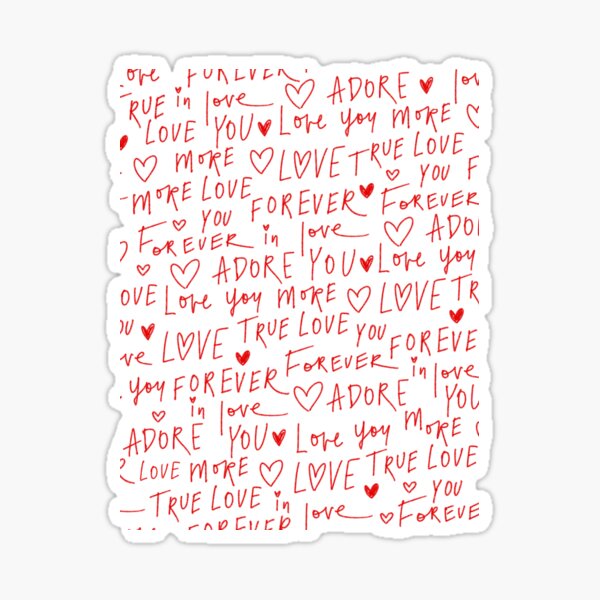 ove FOREVER
TRUE in love ♡ ADORE ♥ lov
LOVE YOU ♥ Love you MORE ♡
♡ MORE ♡ LOVE TRUE LOVE
MORE LOVE YOU FOREVER ♥ YOU F
♡ FOREVER in love ♡ FOREVER
♡ ♡ ADORE YOU ♥ Love you ADOI
OVE Love you MORE ♡ LOVE TR
♥ LOVE TRUE LOVE YOU FOREVE
ve you FOREVER ♥ FOREVER in love
♡ in love ♡ ADORE ♥ YOU
ADORE YOU ♥ Love you MORE
LOVE MORE ♡ LOVE TRUE LOVE
TRUE LOVE in love ♥ ♡ YOU
FOREVER ♡ FOREVE